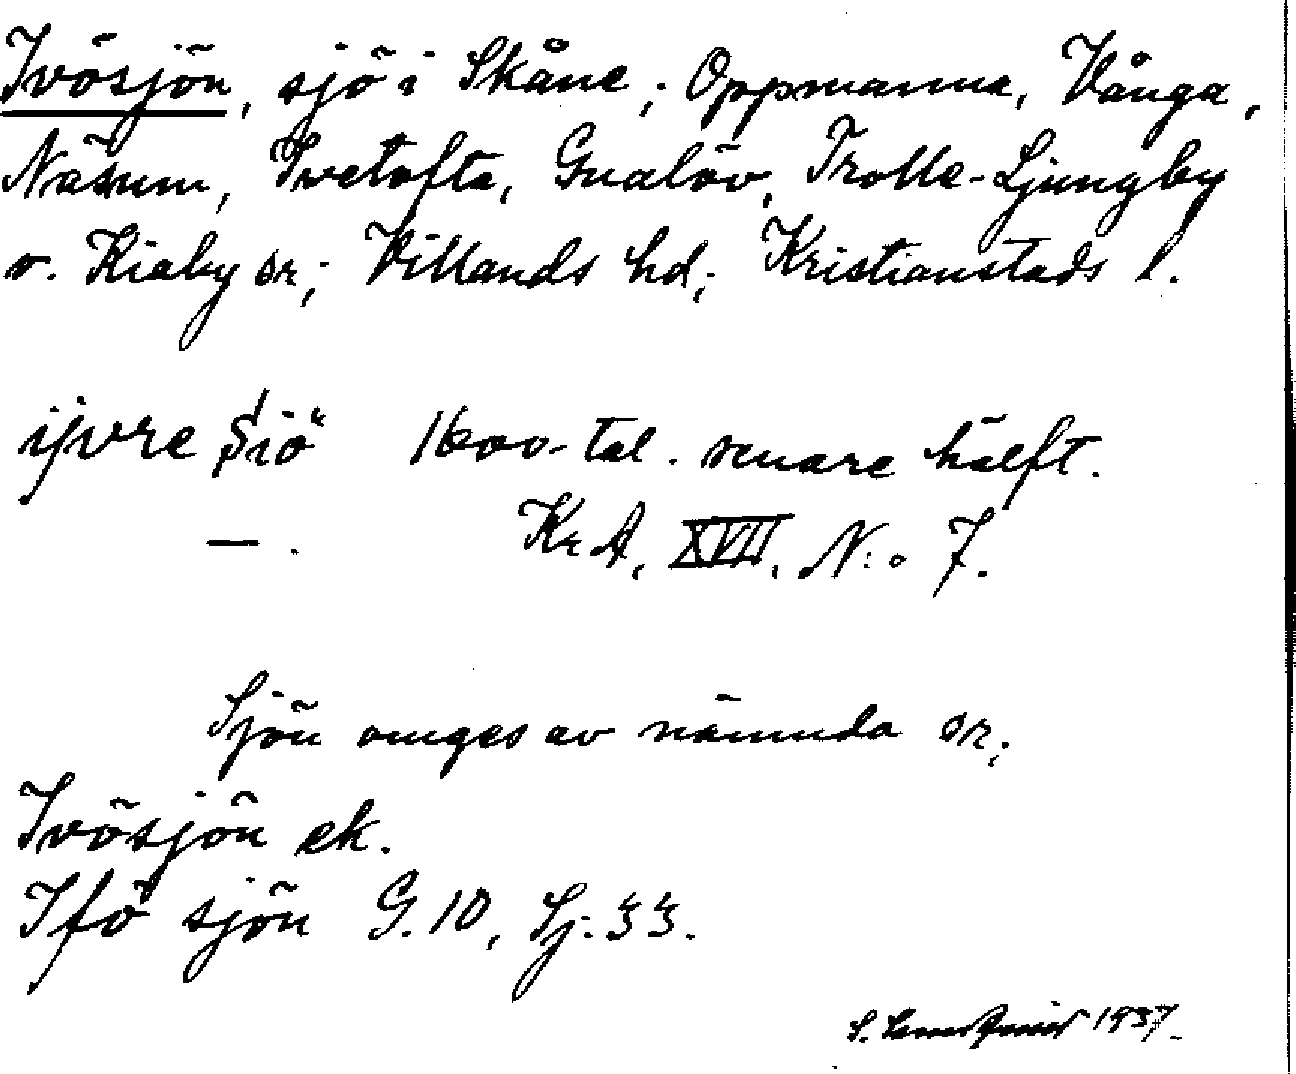 Ivösjön, sjö i Skåne; Oppmanna, Vånga,
Näsum, Ivetofta, Gualöv, Trolle-Ljungby
o. Kiaby sr; Villands hd; Kristianstads l.
ijvre Siö 1600-tal. senare hälft.
— . Kr A, XVII, N:o 7.
Sjön omges av nämnda sr;
Ivösjön ek.
Ifö sjön G.10, Sj:33.
S. 1937.